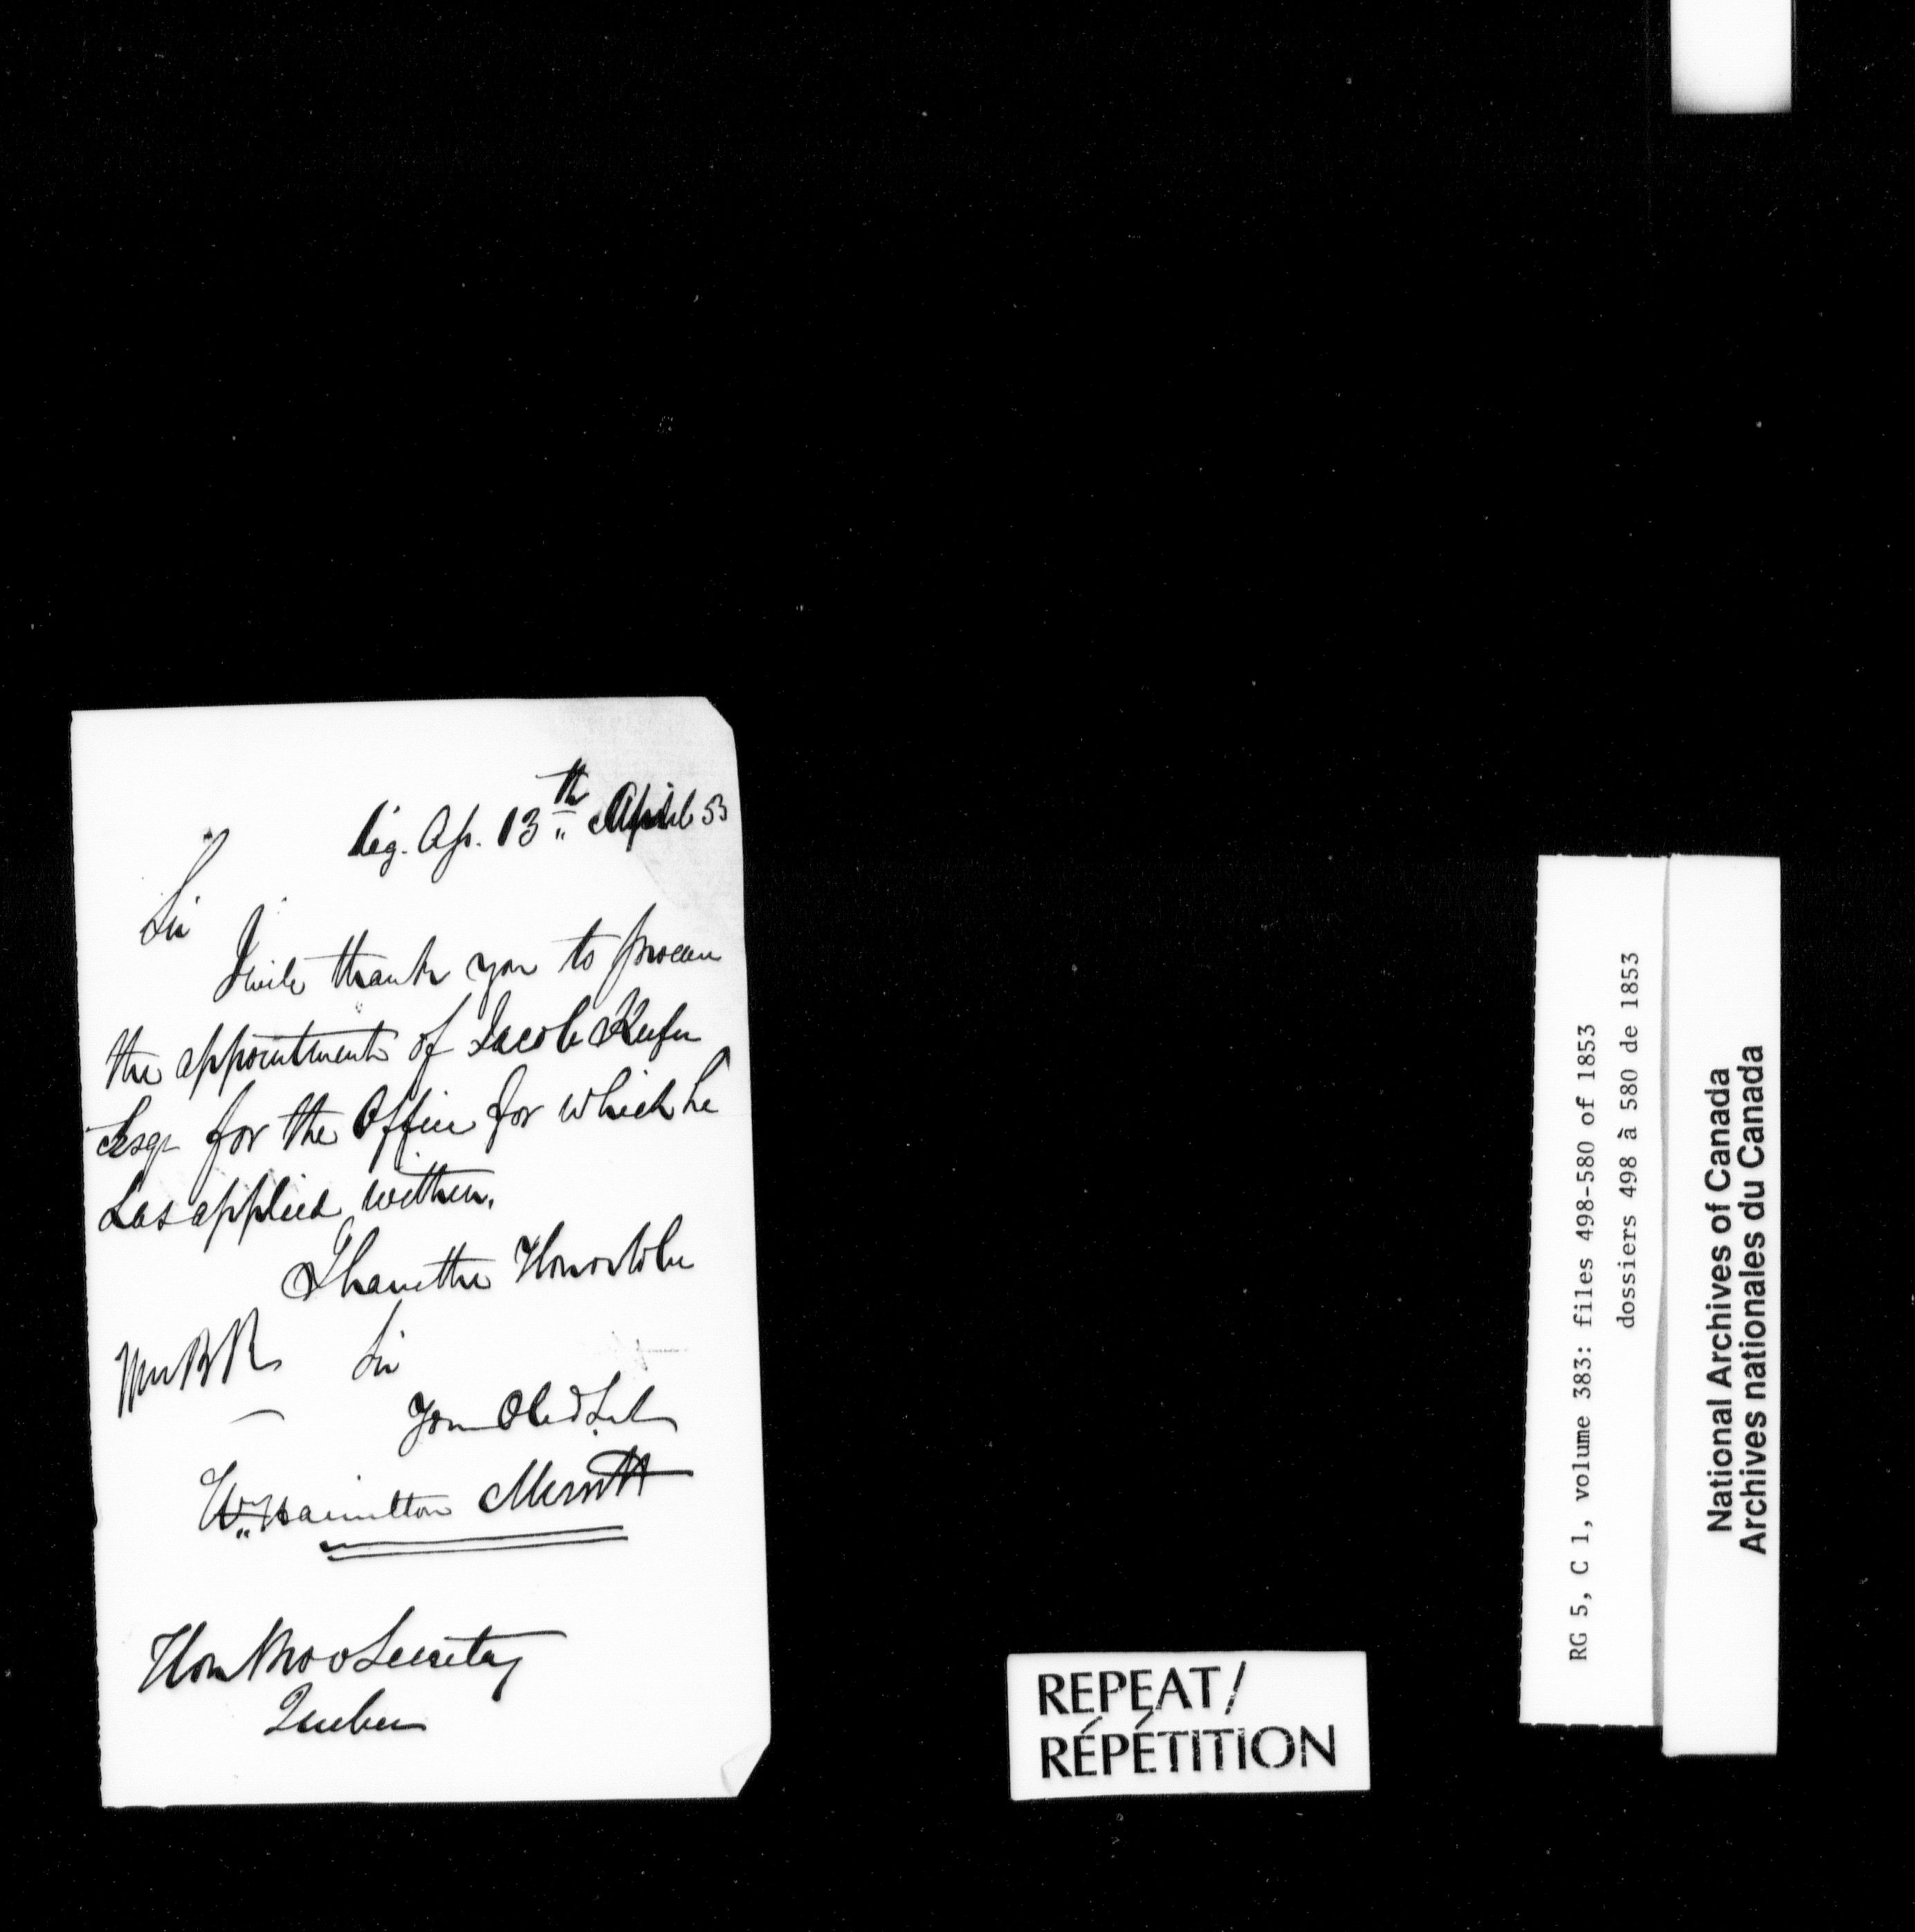 Leg. As. 13th April 53
Sir
I will thank you to procure
the appointment of Jacob Keefer
Esqr for the Office for which he
has applied within.
I have the Honor to be
Sir
Your Obed St
Wm Hamilton Merritt
Hon Prov Secretary
Quebec
REPEAT/
RÉPÉTITION
RG 5, C 1, volume 383: files 498-580 of 1853
dossiers 498 à 580 de 1853
National Archives of Canada
Archives nationales du Canada